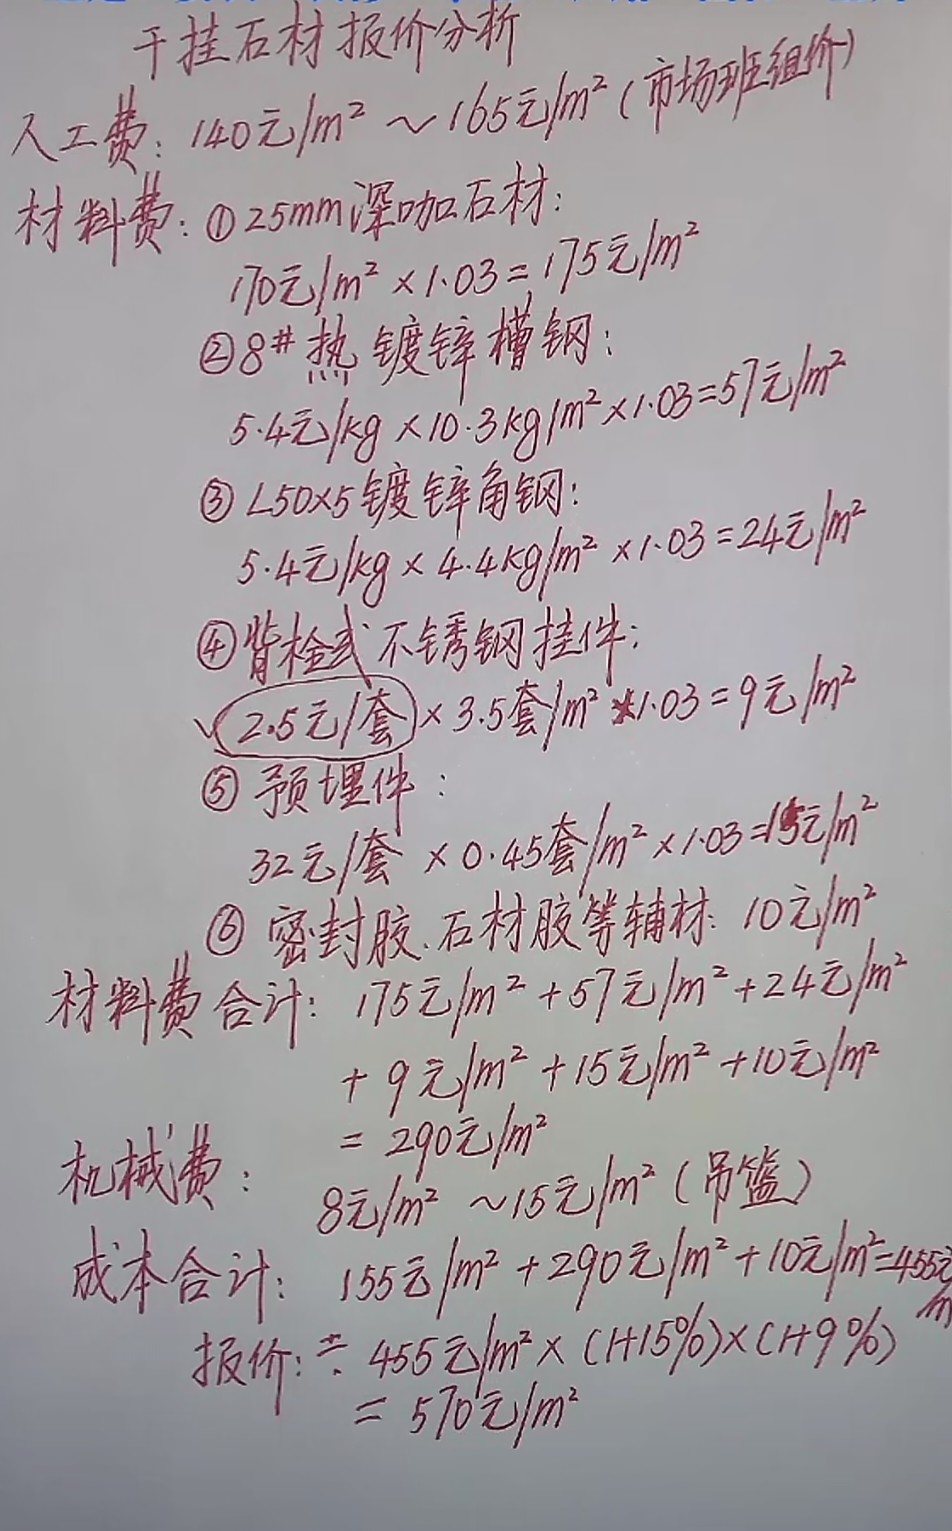 干挂石材报价分析
人工费: 140元/m² ~165元/m² (市场班组价)
材料费: ①25mm深咖石材:
170元/m² ×1.03=175元/m²
②8#热镀锌槽钢:
5.4元/kg ×10.3kg/m²×1.03=57元/m²
③ L50×5镀锌角钢:
5.4元/kg × 4.4kg/m² ×1.03=24元/m²
④背栓式不锈钢挂件:
√2.5元/套 × 3.5套/m² ×1.03=9元/m²
⑤ 预埋件:
32元/套 ×0.45套/m² ×1.03=15元/m²
⑥ 密封胶、石材胶等辅材: 10元/m²
材料费合计: 175元/m² +57元/m² +24元/m²
+ 9元/m² +15元/m² +10元/m²
= 290元/m²
机械费:
8元/m² ~15元/m² (吊篮)
成本合计: 155元/m² +290元/m² +10元/m²=455元
/m
报价:÷ 455元/m² × (1+15%)×(1+9%)
= 570元/m²